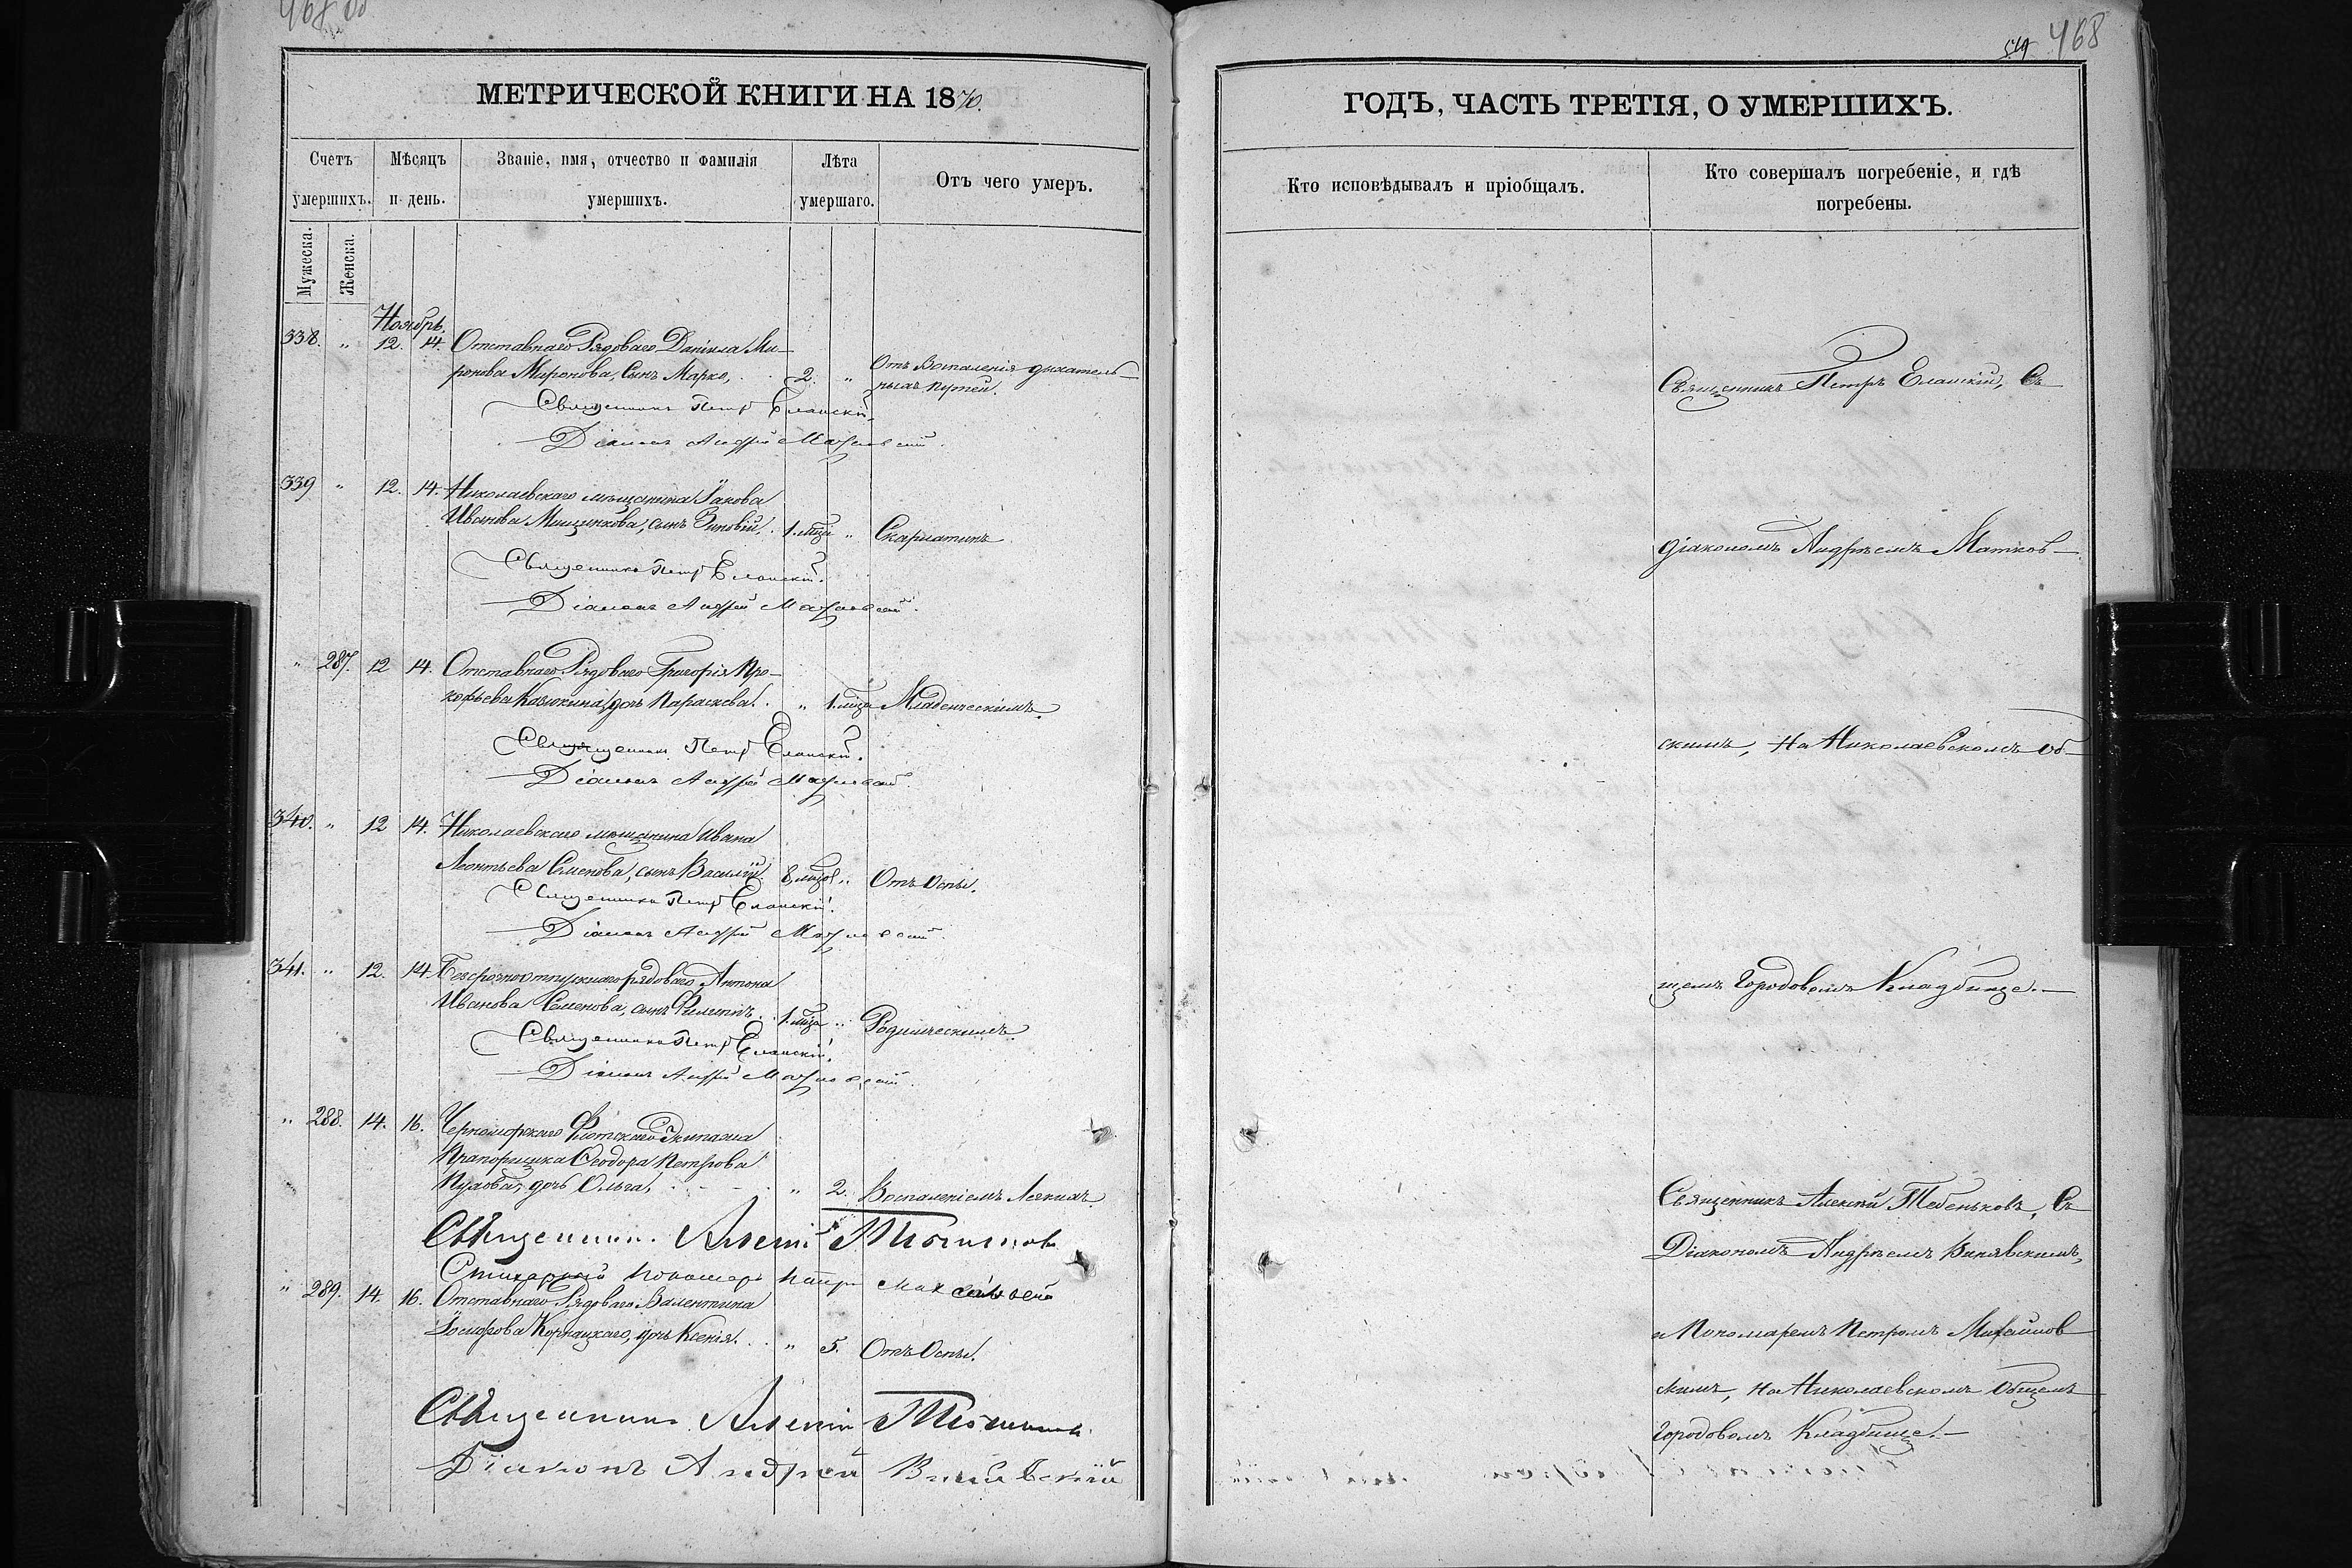 468 об
МЕТРИЧЕСКОЙ КНИГИ НА 1870.
Счетъ умершихъ.
Мѣсяцъ и день.
Званіе, имя, отчество и фамилія умершихъ.
Лѣта умершаго.
Отъ чего умеръ.
Мужеска.
Женска.
Ноябрь.
338. " 12. 14. Отставнаго Рядоваго Даніила Ми-
ронова Миронова, Сынъ Марко, 2. " Отъ Воспаленія дыхатель-
ныхъ путей.
Священникъ Петръ Еланскій.
Діаконъ Андрей Матковскій.
339 " 12. 14. Николаевскаго мѣщанина Іакова
Иванова Мищинкова, сынъ Зиновій. 1. мѣся " Скарлатина
Священникъ Петръ Еланскій.
Діаконъ Андрей Матковскій.
" 287. 12 14. Отставнаго Рядоваго Григорія Про-
кофьева Казюкина, дочь Параскева. " 1. мѣся Младенческимъ.
Священникъ Петръ Еланскій.
Діаконъ Андрей Матковскій.
340. " 12 14. Николаевскаго мѣщанина Ивана
Леонтьева Семенова, сынъ Василій. 8. " Отъ Оспы.
Священникъ Петръ Еланскій.
Діаконъ Андрей Матковскій.
341. " 12. 14 Безсрочноотпускнаго рядоваго Антона
Иванова Семенова, сынъ Филиппъ. 1. " Родимческимъ.
Священникъ Петръ Еланскій.
Діаконъ Андрей Матковскій.
" 288. 14. 16. Черноморскаго Флотскаго Экипажа
Прапорщика Ѳеодора Петрова
дочь Ольга, " 2. Воспаленіемъ Легкихъ.
Священникъ Алексій
Стихарный Пономарь Петръ
" 289. 14. 16. Отставнаго Рядоваго Валентина
Іосифова Корнацкаго, дочь Ксенія. " 5. Отъ Оспы.
Священникъ Алексій
Діаконъ Андрей
519 468
ГОДЪ, ЧАСТЬ ТРЕТІЯ, О УМЕРШИХЪ.
Кто исповѣдывалъ и пріобщалъ.
Кто совершалъ погребеніе, и гдѣ
погребены.
Священникъ Петръ Еланскій, Съ
діакономъ Андреемъ Матков-
скимъ, На Николаевскомъ Об-
щемъ Городовомъ Кладбище.—
Священникъ Алексій Тебеньковъ, Съ
Діакономъ Андреемъ
и Пономаремъ Петромъ
скимъ, на Николаевскомъ Общемъ
Городовомъ Кладбище.—